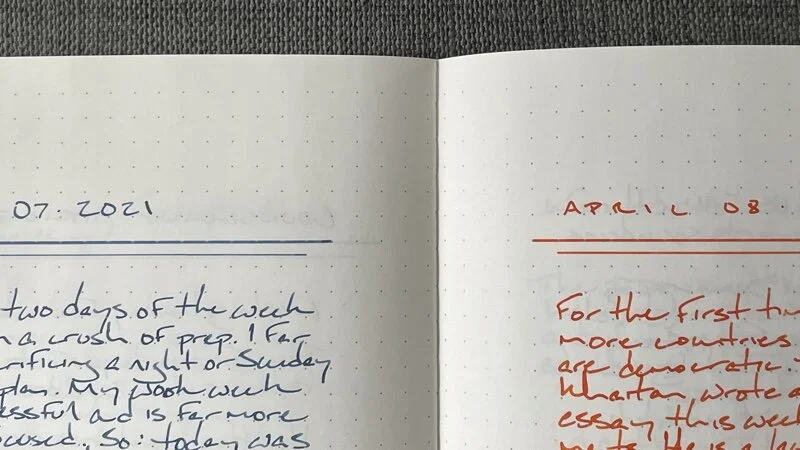 07.2021
two days of the week
a crush of prep. I far
a night or Sunday
plan. My work week
and is far more
So: today was
APRIL 08.
For the first
more countries
are democratic.
wrote a
essay this week
He is a